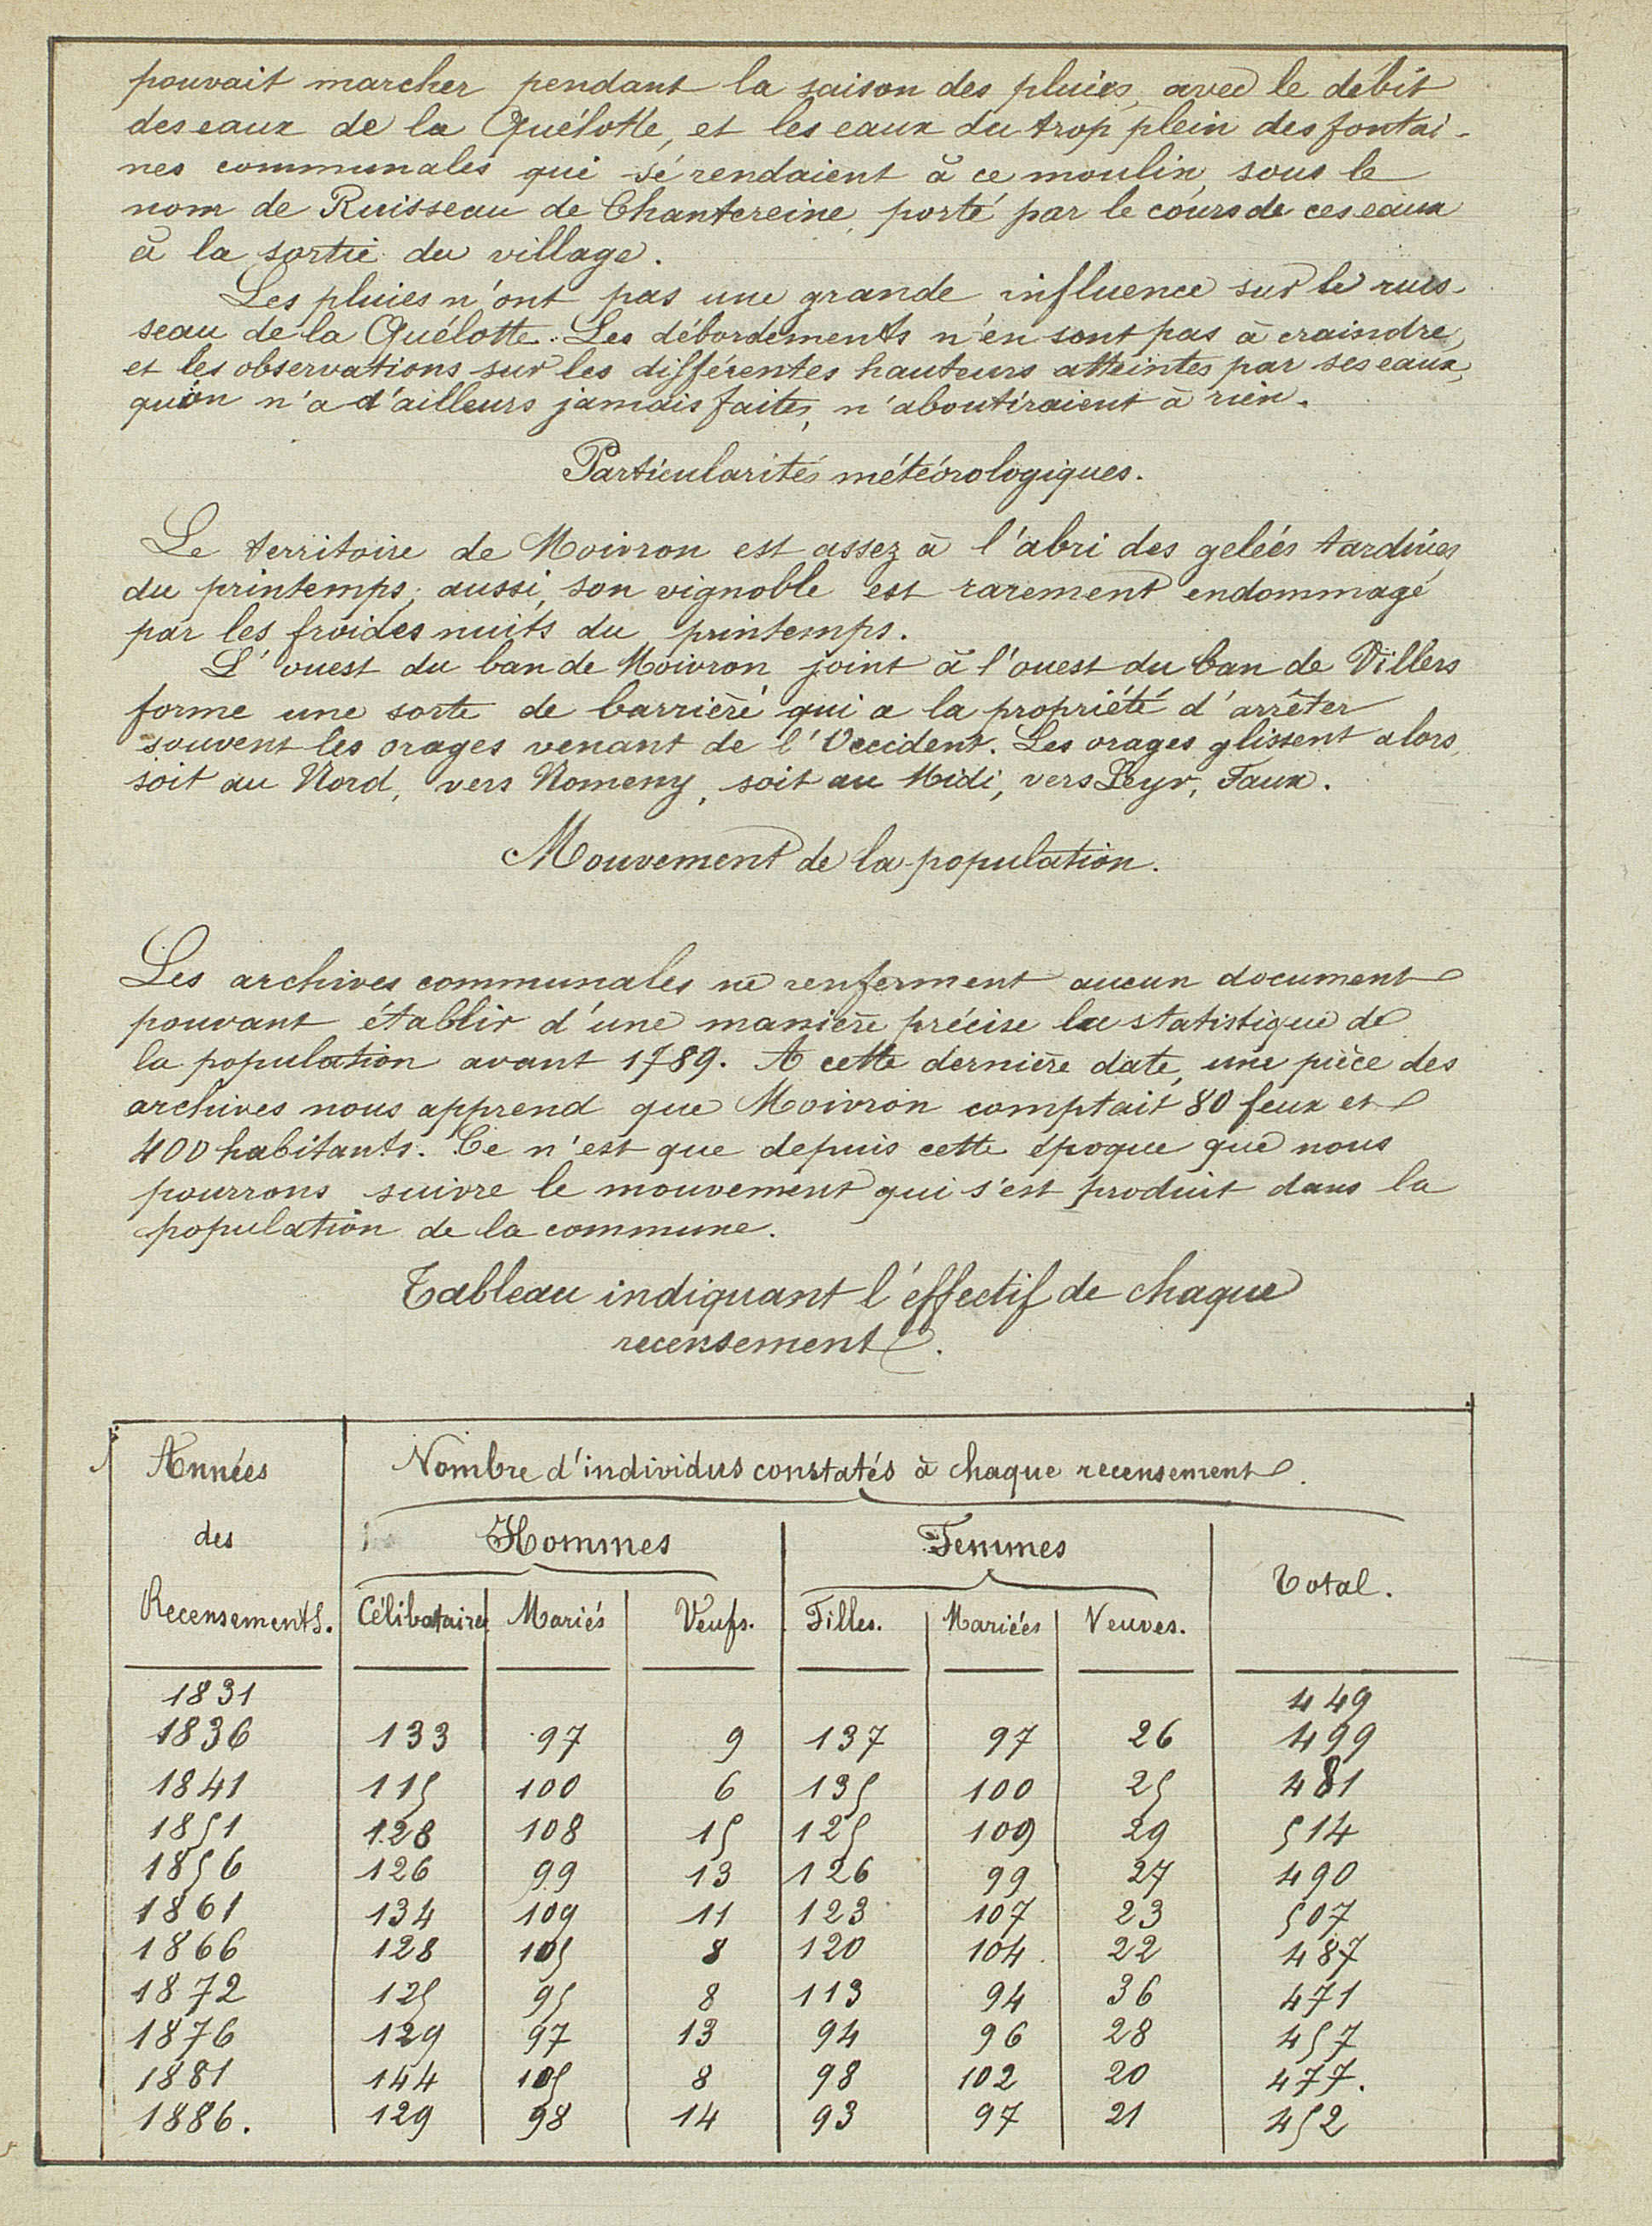 pouvait marcher pendant la saison des pluies, avec le débit
des eaux de la Quélotte, et les eaux du trop plein des fontai-
nes communales qui se rendaient à ce moulin, sous le
nom de Ruisseau de Chantereine, porté par le cours de ces eaux
à la sortie du village.
Les pluies n'ont pas une grande influence sur le ruis-
seau de la Quélotte. Les débordements n'en sont pas à craindre,
et les observations sur les différentes hauteurs atteintes par ses eaux,
qu'on n'a d'ailleurs jamais faites, n'aboutiraient à rien.
Particularités météorologiques.
Le territoire de Moivron est assez à l'abri des gelées tardives
du printemps; aussi, son vignoble est rarement endommagé
par les froides nuits du printemps.
L'ouest du ban de Moivron joint à l'ouest du ban de Villers
forme une sorte de barrière qui a la propriété d'arrêter
souvent les orages venant de l'Occident. Les orages glissent alors,
soit au Nord, vers Nomeny, soit au Midi, vers Leyr, Faux.
Mouvement de la population.
Les archives communales ne renferment aucun document
pouvant établir d'une manière précise la statistique de
la population avant 1789. A cette dernière date, une pièce des
archives nous apprend que Moivron comptait 80 feux et
400 habitants. Ce n'est que depuis cette époque que nous
pourrons suivre le mouvement qui s'est produit dans la
population de la commune.
Tableau indiquant l'effectif de chaque
recensement.
Années des Recensements. Nombre d'individus constatés à chaque recensement.
Hommes Femmes Total.
Célibataires Mariés Veufs. Filles. Mariées Veuves.
1831 449
1836 133 97 9 137 97 26 499
1841 115 100 6 135 100 25 481
1851 128 108 15 125 109 29 514
1856 126 99 13 126 99 27 490
1861 134 109 11 123 107 23 507
1866 128 105 8 120 104 22 487
1872 125 95 8 113 94 36 471
1876 129 97 13 94 96 28 457
1881 144 105 8 98 102 20 477.
1886. 129 98 14 93 97 21 452